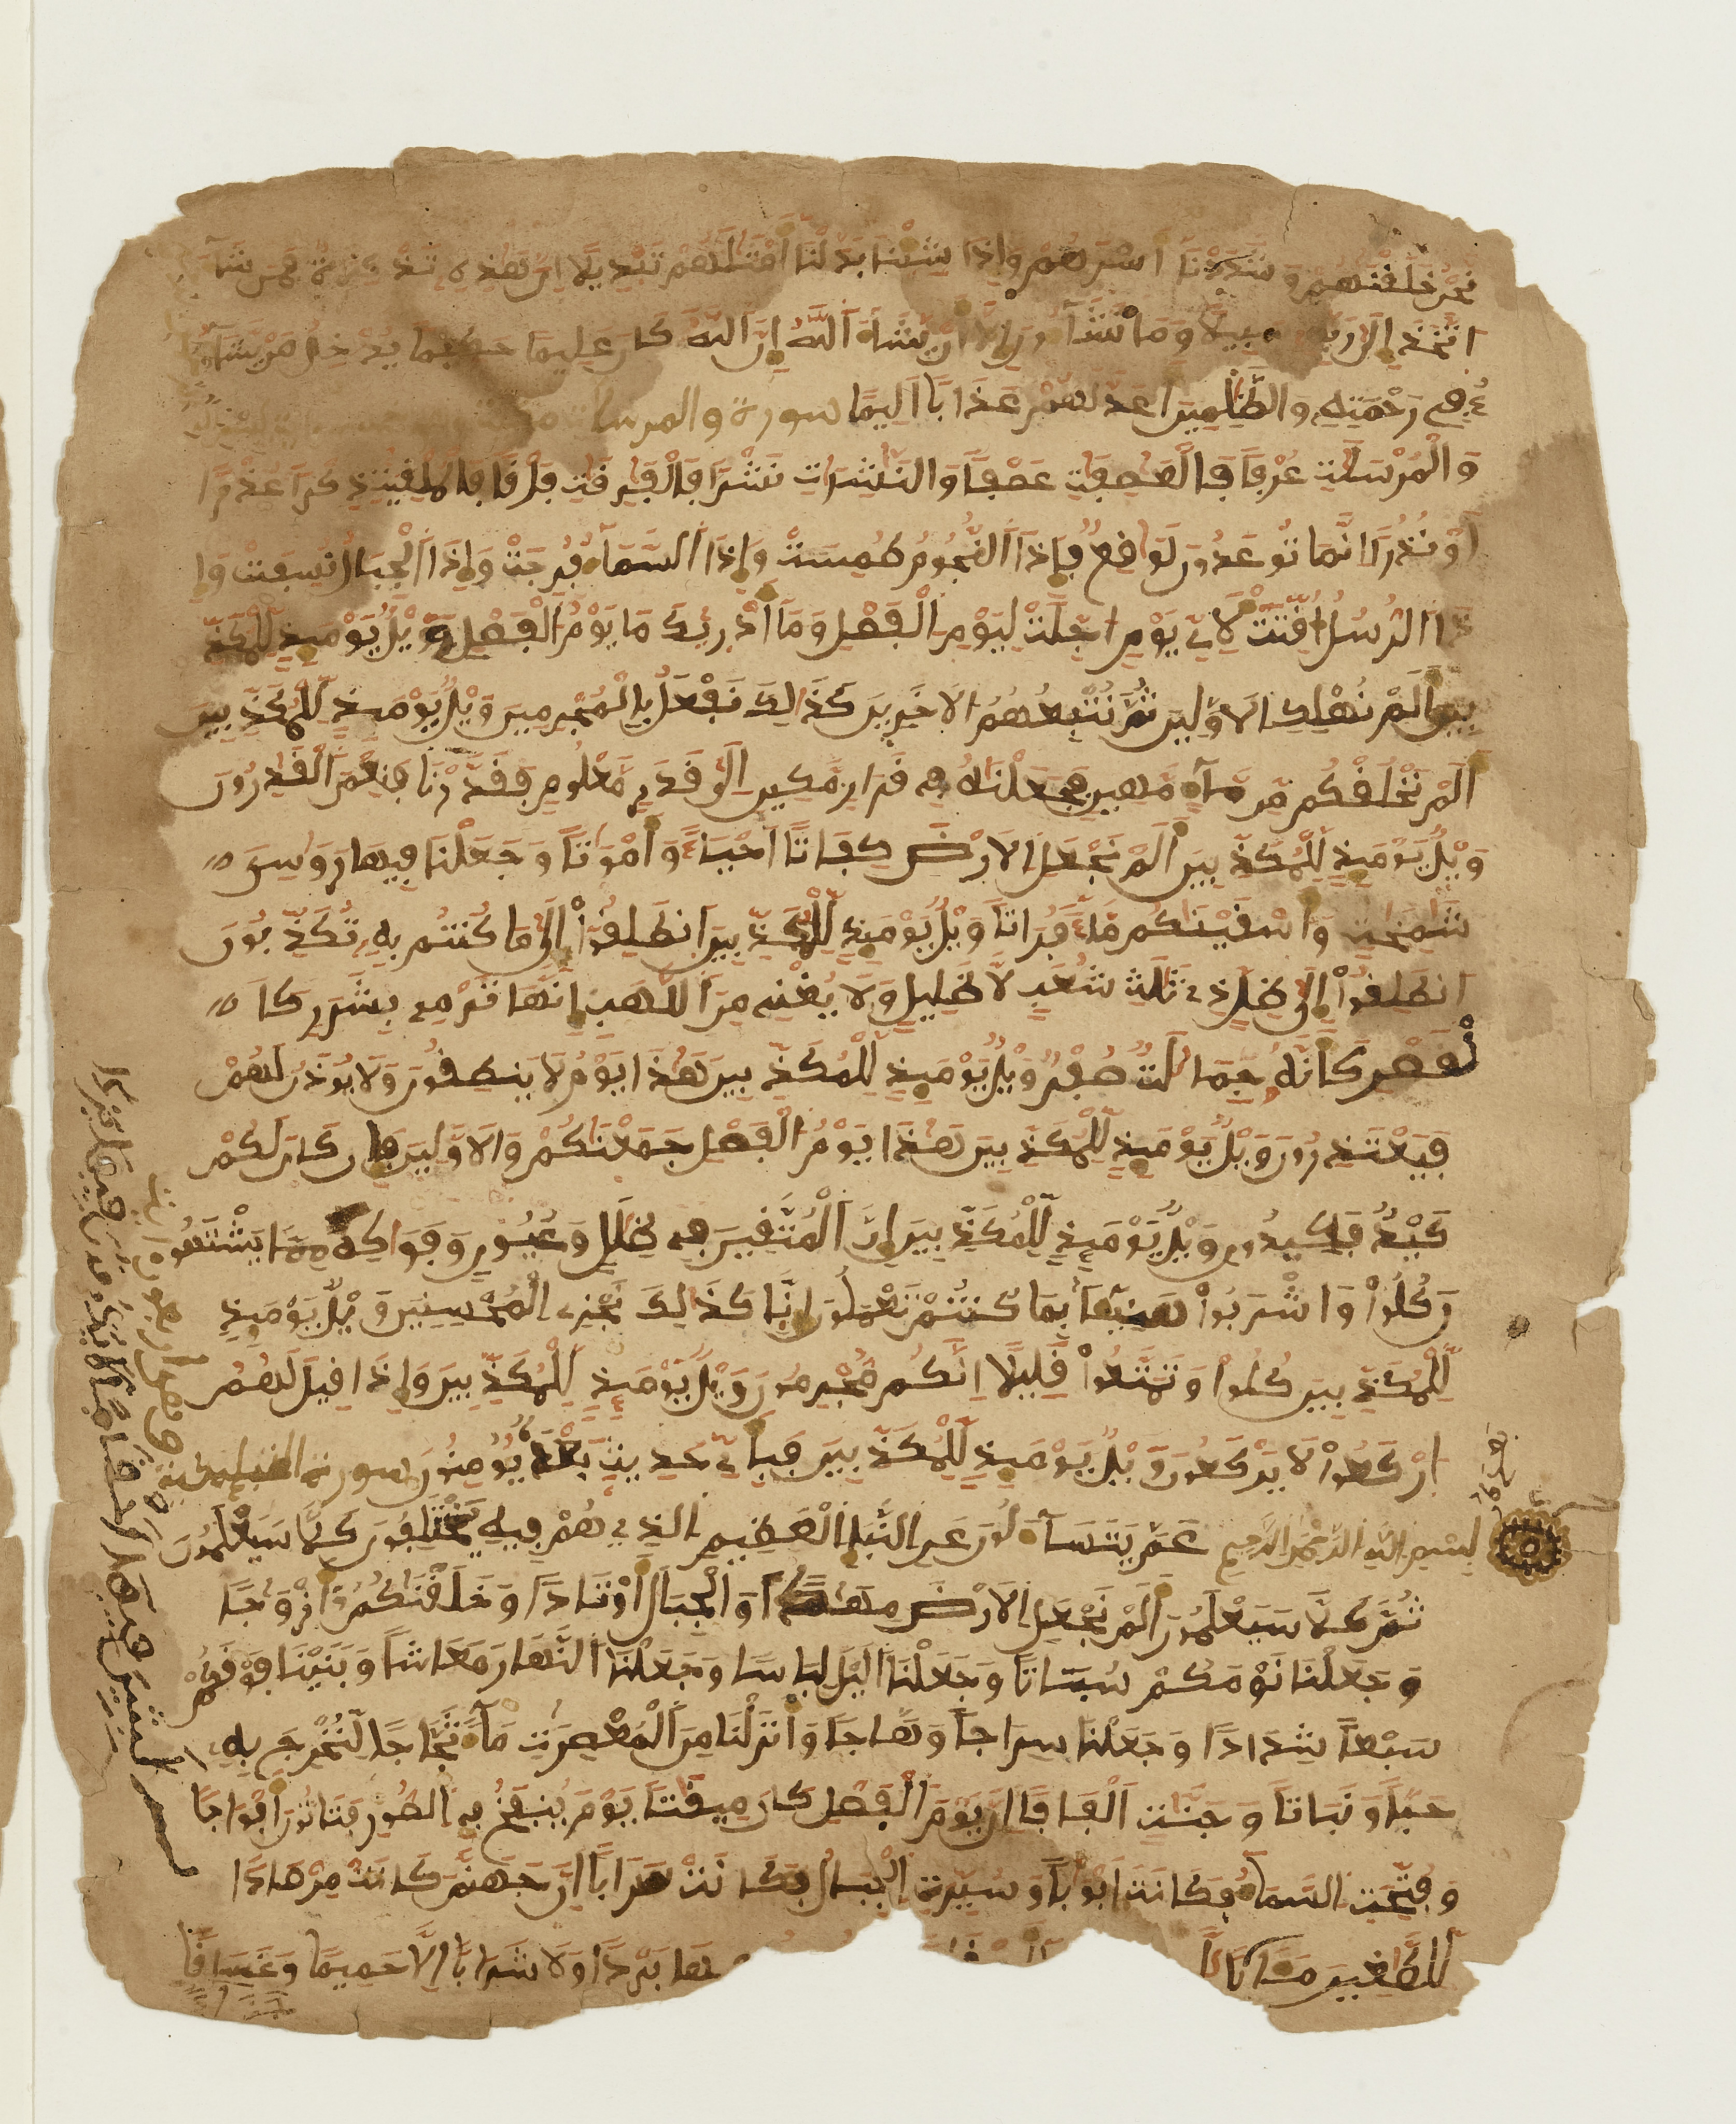 نحن خلقنهم وشددنا أسرهم وإذا شئنا بدلنا أمثلهم تبديلا إن هذه تذكرة فمن شآء
اتخذ إلى ربه سبيلا وما تشآءون إلا أن يشآء الله إن الله كان عليما حكيما يدخل من يشآ
ء في رحمته والظلمين أعد لهم عذابا أليما سورة والمرسلات
والمرسلت عرفا فالعصفت عصفا والنشرت نشرا فالفرقت فرقا فالملقيت ذكرا عذرا
أو نذرا إنما توعدون لواقع فإذا النجوم طمست وإذا السمآء فرجت وإذا الجبال نسفت وإ
ذا الرسل أقتت لأي يوم أجلت ليوم الفصل ومآ أدريك ما يوم الفصل ويل يومئذ للمكذ
بين ألم نهلك الاولين ثم نتبعهم الاخرين كذالك نفعل بالمجرمين ويل يومئذ للمكذبين
ألم نخلقكم من مآء مهين فجعلنه في قرار مكين إلى قدر معلوم فقدرنا فنعم القدرون
ويل يومئذ للمكذبين ألم نجعل الارض كفاتا أحيآء وأمواتا وجعلنا فيها روسي
شمخت وأسقينكم مآء فراتا ويل يومئذ للمكذبين انطلقوا إلى ما كنتم به تكذبون
انطلقوا إلى ظل ذي ثلث شعب لا ظليل ولا يغني من اللهب إنها ترمي بشرر كا
لقصر كأنه جمالت صفر ويل يومئذ للمكذبين هذا يوم لا ينطقون ولا يوذن لهم
فيعتذرون ويل يومئذ للمكذبين هذا يوم الفصل جمعنكم والاولين فإن كان لكم
كيد فكيدون ويل يومئذ للمكذبين إن المتقين في ظلل وعيون وفواكه مما يشتهو
ن كلوا واشربوا هنيئا بما كنتم تعملون إنا كذالك نجزي المحسنين ويل يومئذ
للمكذبين كلوا وتمتعوا قليلا إنكم مجرمون ويل يومئذ للمكذبين وإذا قيل لهم
اركعوا لا يركعون ويل يومئذ للمكذبين فبأي حديث بعده يومنون سورة النبإ مكية
بسم الله الرحمن الرحيم عم يتسآءلون عن النبإ العظيم الذي هم فيه مختلفون كلا سيعلمون
ثم كلا سيعلمون ألم نجعل الارض مهدا والجبال أوتادا وخلقنكم أزوجا
وجعلنا نومكم سباتا وجعلنا اليل لباسا وجعلنا النهار معاشا وبنينا فوقكم
سبعا شدادا وجعلنا سراجا وهاجا وأنزلنا من المعصرت مآء ثجاجا لنخرج به
حبا ونباتا وجنت ألفافا إن يوم الفصل كان ميقتا يوم ينفخ في الصور فتاتون أفواجا
وفتحت السمآء فكانت أبوبا وسيرت الجبال فكانت سرابا إن جهنم كانت مرصادا
للطغين مئابا بردا ولا شرابا إلا حميما وغساقا